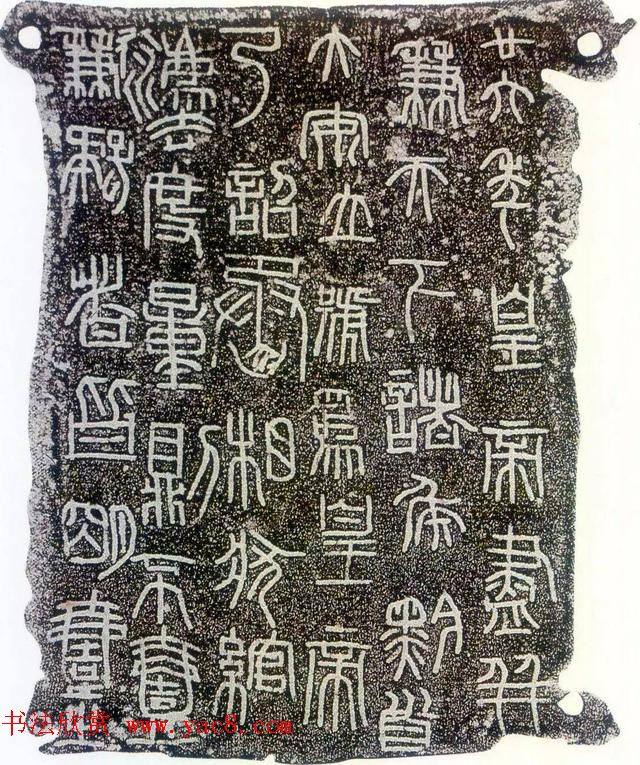 廿六年皇帝盡并
兼天下諸侯黔首
大安立號為皇帝
乃詔丞相狀綰
灋度量則不壹
歉疑者皆明壹之
书法欣赏 www.yac8.com